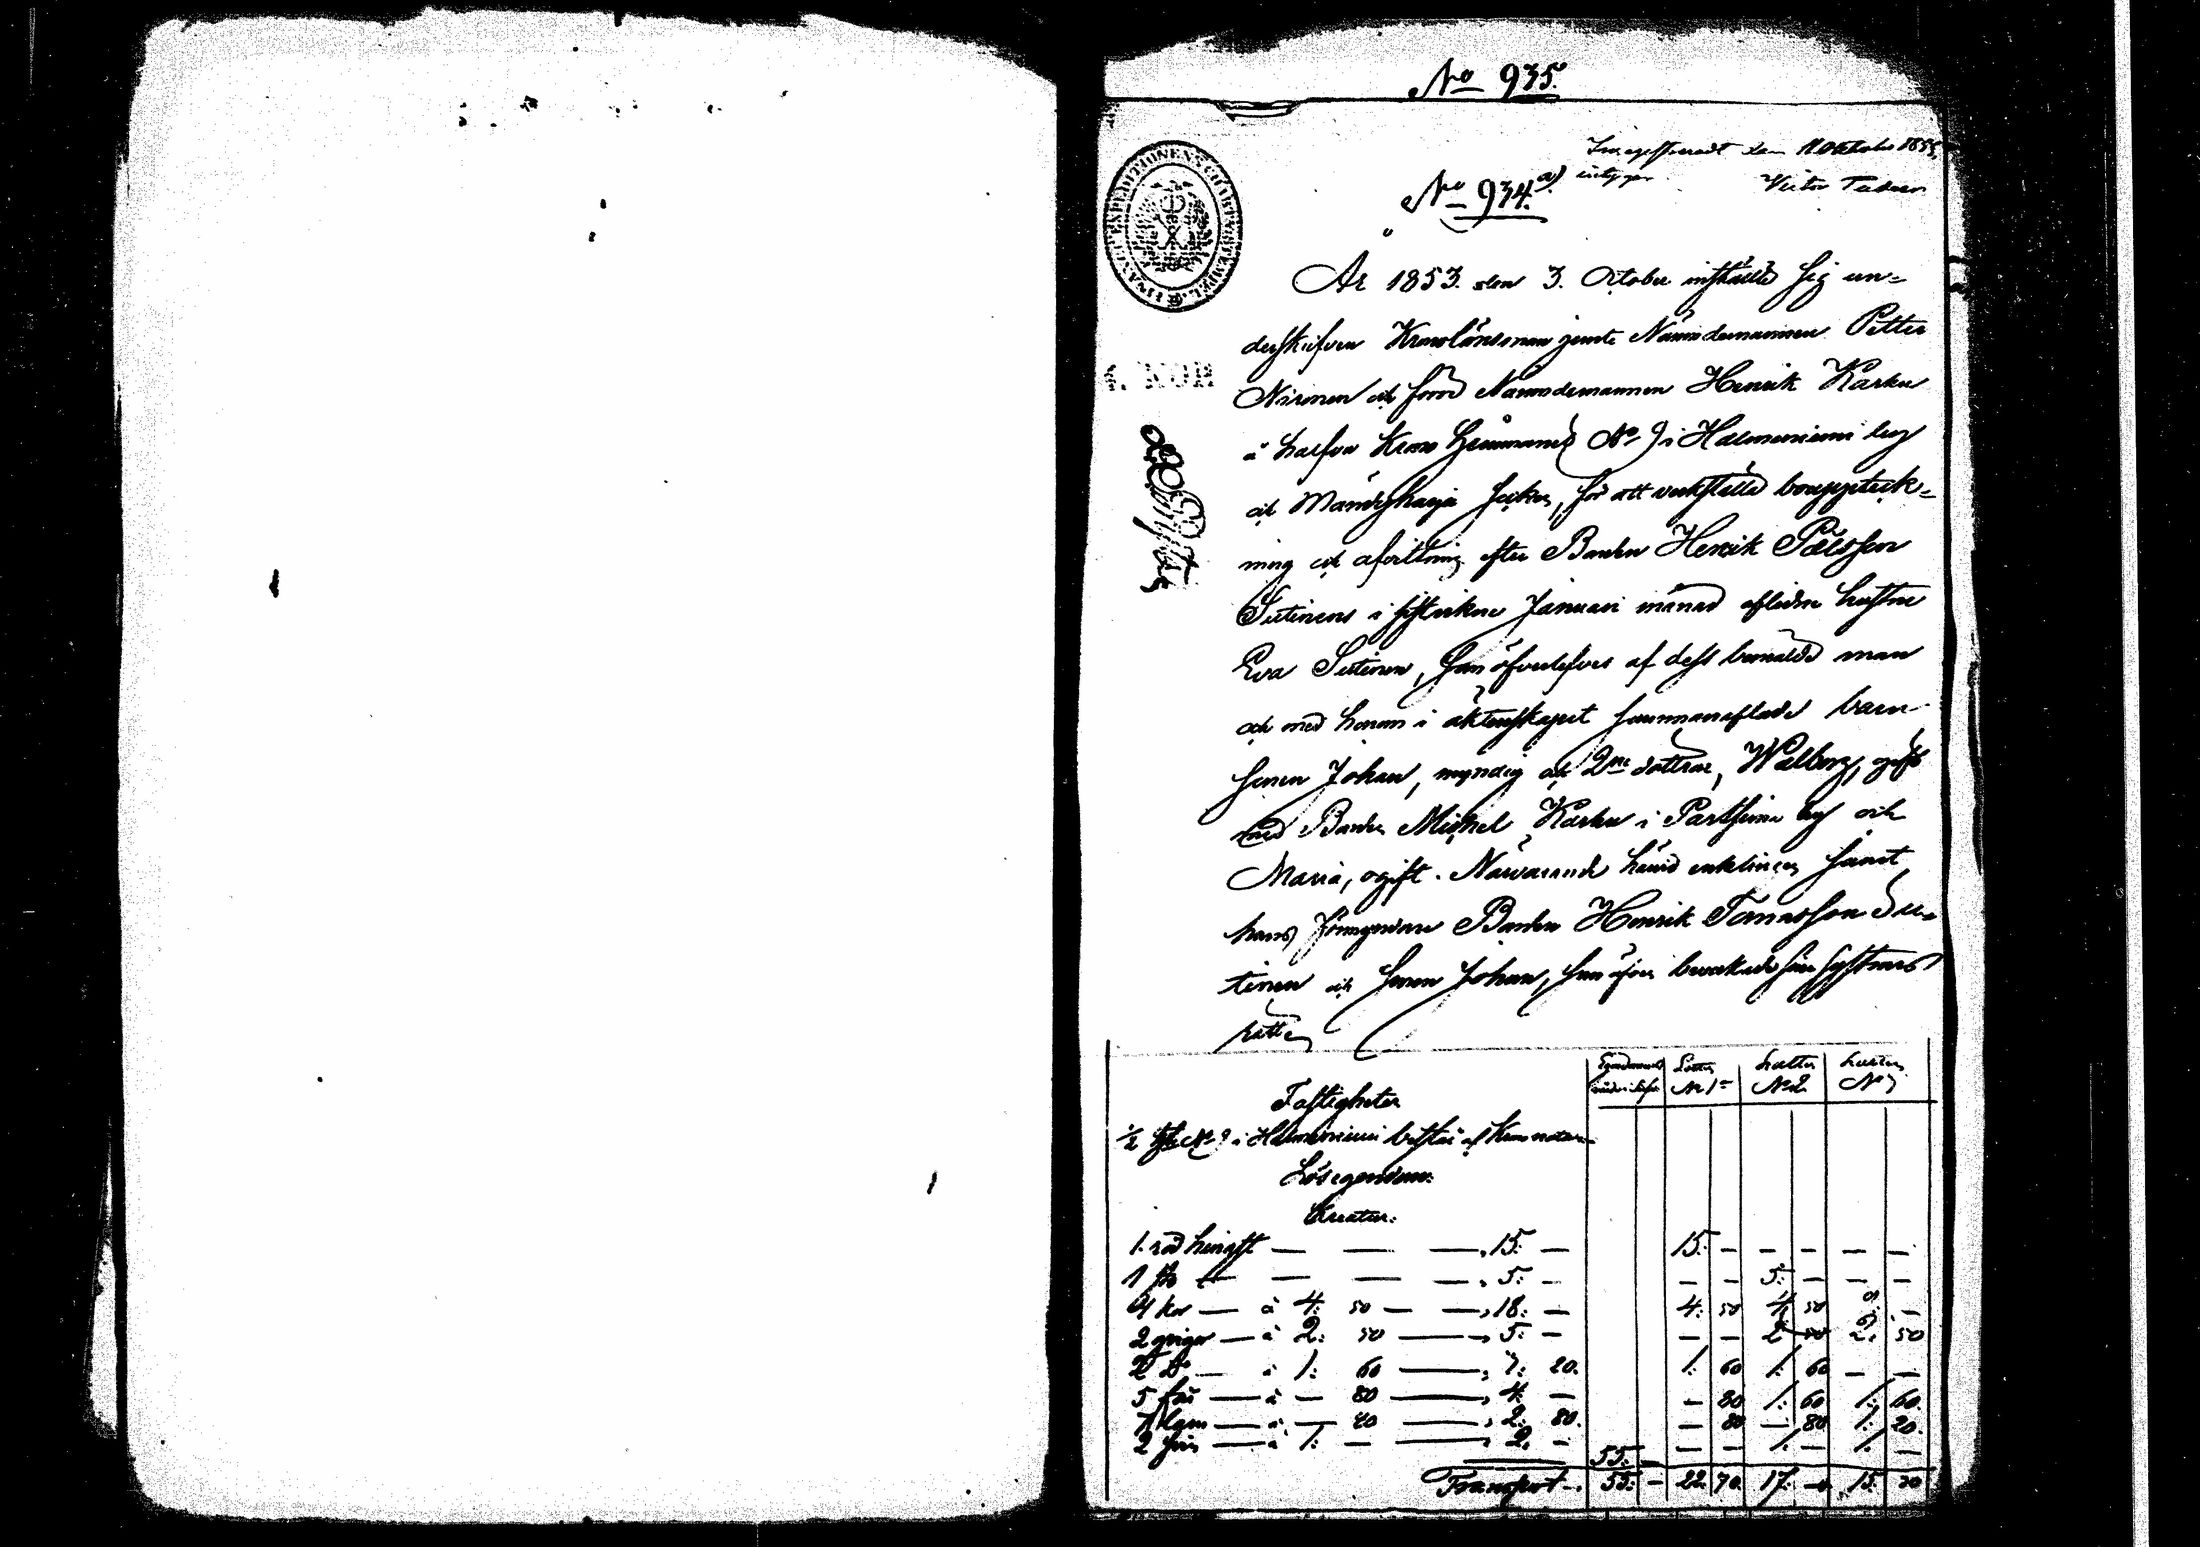 No 935.
Ingifvandt den 11 October 1855,
intygar Victor
No 934. a)
FINANCE EXPEDITIONENS CHARTÆ STEMPEL
4. KOP
År 1853. den 3. October inställde sig un-
derskrifven Kronolänsman jemte Nämndemannen Petter
Nironen och förrd Nämndemannen Henrik Karku
å halfva Krono Hemmanet No 9 i Halmeniemi by
och Mändyharju Socken, för att verkställa bouppteck-
ning och afvittring efter Bonden Henrik Pålsson
Sutinens i sistvikne Januari månad aflidne hustru
Eva Sutinen, som öfverlefves af dess bemälde man
och med honom i äktenskapet sammanaflade barn
sonen Johan, myndig och 2ne döttrar, Walborg, gift
med Bonden Michel Karku i Partsima by och
Maria, ogift. Närvarande härvid enklingen samt
hans förmyndare Bonden Henrik Tomasson Su-
tinen och sonen Johan, som äfven bevakade sin systers
rätt.
Lotten No 1 Lotten No 2 Lotten No 3
Fastigheter
1/2 No 9 i Halmeniemi består af Krono natur
Lösegendom:
Kreatur:
1. röd hingst — — — 15. — 15. — — — — —
1 sto — — — 5. — — — 5. — — —
4 kor — à 4. 50 — 18. — 4. 50 4. 50 9. —
2 qvigor — à 2. 50 — 5. — — — 2. 50 2. 50
2 do — à 1. 60 — 3. 20. 1. 60 1. 60 — —
5 får — à — 80 — 4. — — 80 1. 60 1. 60.
7 lam — à — 40 — 2. 80. — 80 — 80 1. 20.
2 svin — à 1. — — 2. — 55. — — — 1. — 1. —
Transport — 55. — 22. 70. 17. — 15. 30